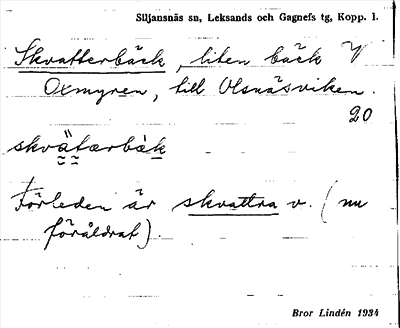 Siljansnäs sn, Leksands och Gagnefs tg, Kopp. l.
Skvatterbäck, liten bäck V
Oxmyren, till Olsnäsviken.
20
skvätærbäk
Förleden är skvattra v. (nu
föråldrat).
Bror Lindén 1934